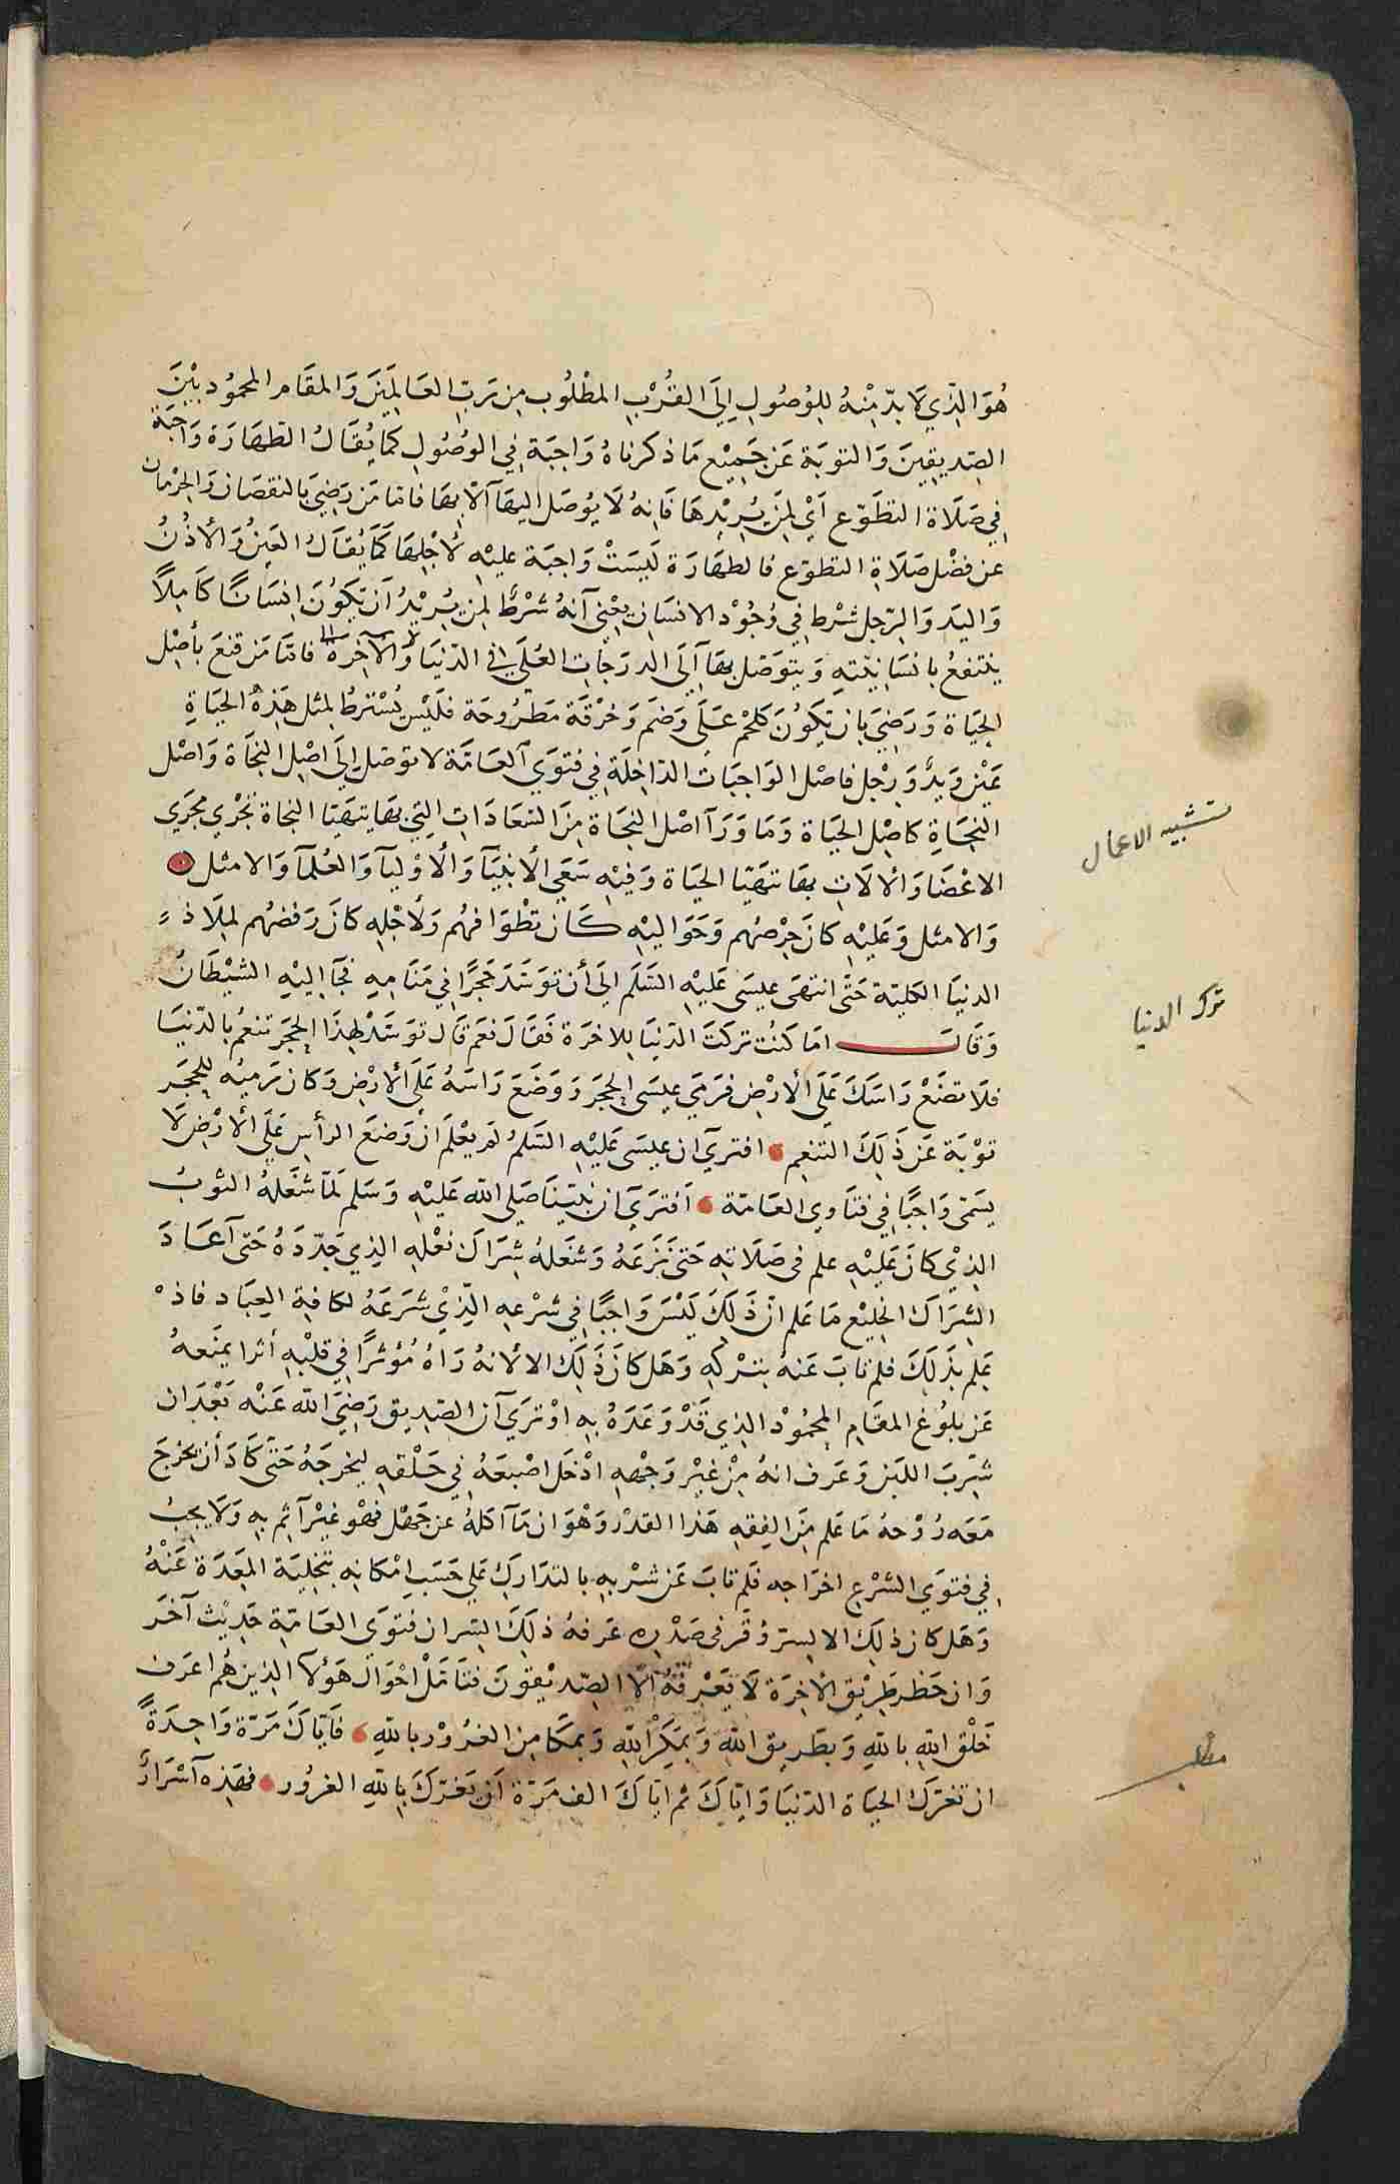 هُوَ الَّذِي لَا بدّ مِنْهُ لِلوُصُولِ اِلَى القُرْبِ المطْلُوب مِن رَبّ العَالَمِينَ وَالمقَامِ المحمُود بَيْنَ
الصِّدِيقِينَ وَالتوبَة عَن جَمِيْعِ مَا ذكرناهُ وَاجِبَة فِي الوُصُولِ كمَا يُقَالُ الطّهَارَة وَاجِبَة
فِي صَلَاة التطَوّع اَيْ لِمَن يُرِيْدهَا فَانهُ لَا يُوصَل اليهَا الّا بهَا فاما مَن رَضِيَ بالنقصَان وَالحِرْمان
عن فضْل صَلَاةِ التطوّع فالطهَارَة لَيسَتْ وَاجبَة عليْهِ لأجْلِهَا كَمَا يُقَالُ العَينُ وَالأذُنُ
وَاليَد وَالرّجِل شرْط فِي وُجُوْد الانسَان يعْنِي أنهُ شرْطٌ لِمن يُرِيْدُ اَن يَكُونَ اِنسَانًا كَامِلاً
ينتفعُ بانسَانيّتهِ وَيتَوَصّل بهَا اِلَى الدرَجَاتِ العُلَى في الدّنيَا وَالآخِرة فامّا مَن قنعَ بأصْلِ
الحِيَاة وَرَضِيَ بان يَكُونَ كلحْم عَلَى وَضَم وَخرْقَة مَطرُوحَة فلَيْسَ يُشترطُ لمثل هَذِهْ الحيَاةِ
عَيْن وَيدٌ وَرِجْل فاصْل الوَاجبَات الدّاخِلَة فِي فتوَى العَامّة لا توصّل اِلَى اصْلِ النجَاة وَاصْل
النجَاةِ كاصْلِ الحيَاة وَمَا وَرَآ اصْل النجَاة مِنَ السّعَادَاتِ الّتِي بهَا يتهيّا النجاة تجْرِي مجرَي
الاعْضَا وَالألَاتِ بهَا تتهَيّا الحيَاة وَفِيْهِ سَعَي الأنبيَآ وَالأوْليآ وَالعُلمَآ وَالامثل
وَالامثل وَعَليْهِ كانَ حِرْصُهم وَحَوَاليْهِ كَان تطْوَافهُم وَلأجْلِهِ كانَ رَفضهُم لمِلَاذّ
الدنيَا الكليّة حَتّى انتهَى عيسَى عَليْهِ السَّلَم اِلَى أن توَسّدَ حَجَرًا فِي مَنَامهِ فجَآ اِليْهِ الشيْطَانُ
وَقَالَ امَا كنْت تركتَ الدّنيَا للاخرَة فَقَالَ نعَم قَال توَسّدْ لهِذَا الحجَر تنعمُ بالدّنيَا
فلَا تضَعْ رَاسَكَ عَلَى الأرْضِ فرَمَي عيسَى الحجَر وَوَضَعَ رَاسَهُ عَلَى الأرْضِ وَكانَ رَميُه لِلحجَر
توْبَة عَن ذَلِكَ التنعم افترَي ان عيسَى عَليْهِ السّلمُ لَم يعْلَم انّ وَضعَ الرأسِ عَلَى الأرْضِ لَا
يسَمّى وَاجبًا فِي فتاوِي العَامّة أفترَي ان نبيّنَا صَلى الله عَليْهِ وَسَلم لَمّا شغَلهُ الثوبُ
الذِيْ كانَ عَليْهِ علم فى صَلَاتِهِ حَتى نَزَعَهُ وَشغَلهُ شِرَاكَ نعْلهِ الذِي جَدّدَهُ حَتى اَعَادَ
الشِرَاكَ الخلِيْع مَا عَلِم انّ ذَلِكَ لَيْسَ وَاجبًا فِى شرْعِهِ الّذِيْ شرَعَهُ لكافة العِبَاد فاذْ
عَلِم بذَلِكَ فلم تابَ عَنهُ بتركهِ وَهَل كانَ ذَلِكَ الا لأنهُ رَاهُ مُؤثرًا فِي قلبِه أثرا يمنَعهُ
عَن بلوُغ المقَامِ المحمُوْد الذِي قَدْ وَعَدَهُ بهِ اوْ ترَى اَن الصّديق رَضِيَ الله عَنْه بَعْدَ ان
شرِبَ اللبَن وَعَرف انهُ مِنْ غيْر وَجْههِ ادْخَل اصْبعَهُ فِي حَلْقهِ ليُخرجَهُ حَتى كَادَ أن يخرجَ
مَعَه رُوْحهُ مَا عَلِم مِنَ الفِقهِ هَذا القدْر وَهْوَ ان مَآ اكلهُ عن جَهْل فهْو غيْر آثم بهِ وَلَا يجبُ
فِي فتوَى الشرْع اخرَاجه فلم تابَ عَن شرْبهِ بالتدَارك عَلي حَسَبِ امْكانه بتخلِيَة المِعَدَة عَنْهُ
وَهَل كان ذلِكَ الا لسر وُقر فى صَدْره عَرفهُ ذلِكَ السّر ان فتوَى العَامّة حَدِيْث آخَر
وَان خطَر طَرِيْق الأخرَة لَا يَعْرفهُ الّا الصّديْقونَ فتَامّلْ احْوَال هَؤلآ الذِينَ هُم اعرَف
خَلْق الله بالله وَبطَريق الله وَبمَكْر الله وَبمكَامن الغرُوْر بالله فَاَيّاكَ مَرّة وَاحِدَةً
ان تغرّك الحيَاة الدّنيَا وَايّاكَ ثم ايّاكَ الف مَرّة أن يَغرّكَ بِالله الغرُور فهَذِه اَسْرَارٌ
تشبيه الاعمال
ترك الدنيا
مطلب